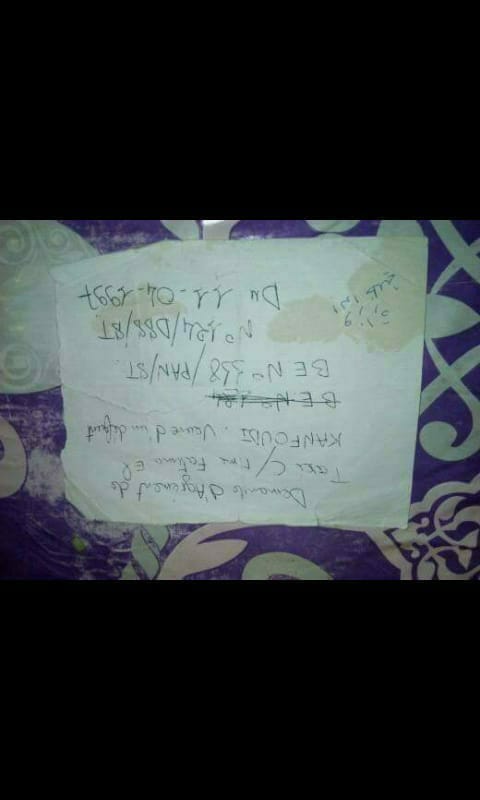 Demande d'Agrément de
Taxi C/ Mme Fatima El
KANFOUDI. Veuve d'un défunt
BE N° 181
BE N° 338/PAN/ST.
N° 124/DBB/ST
Du 11-04-1997